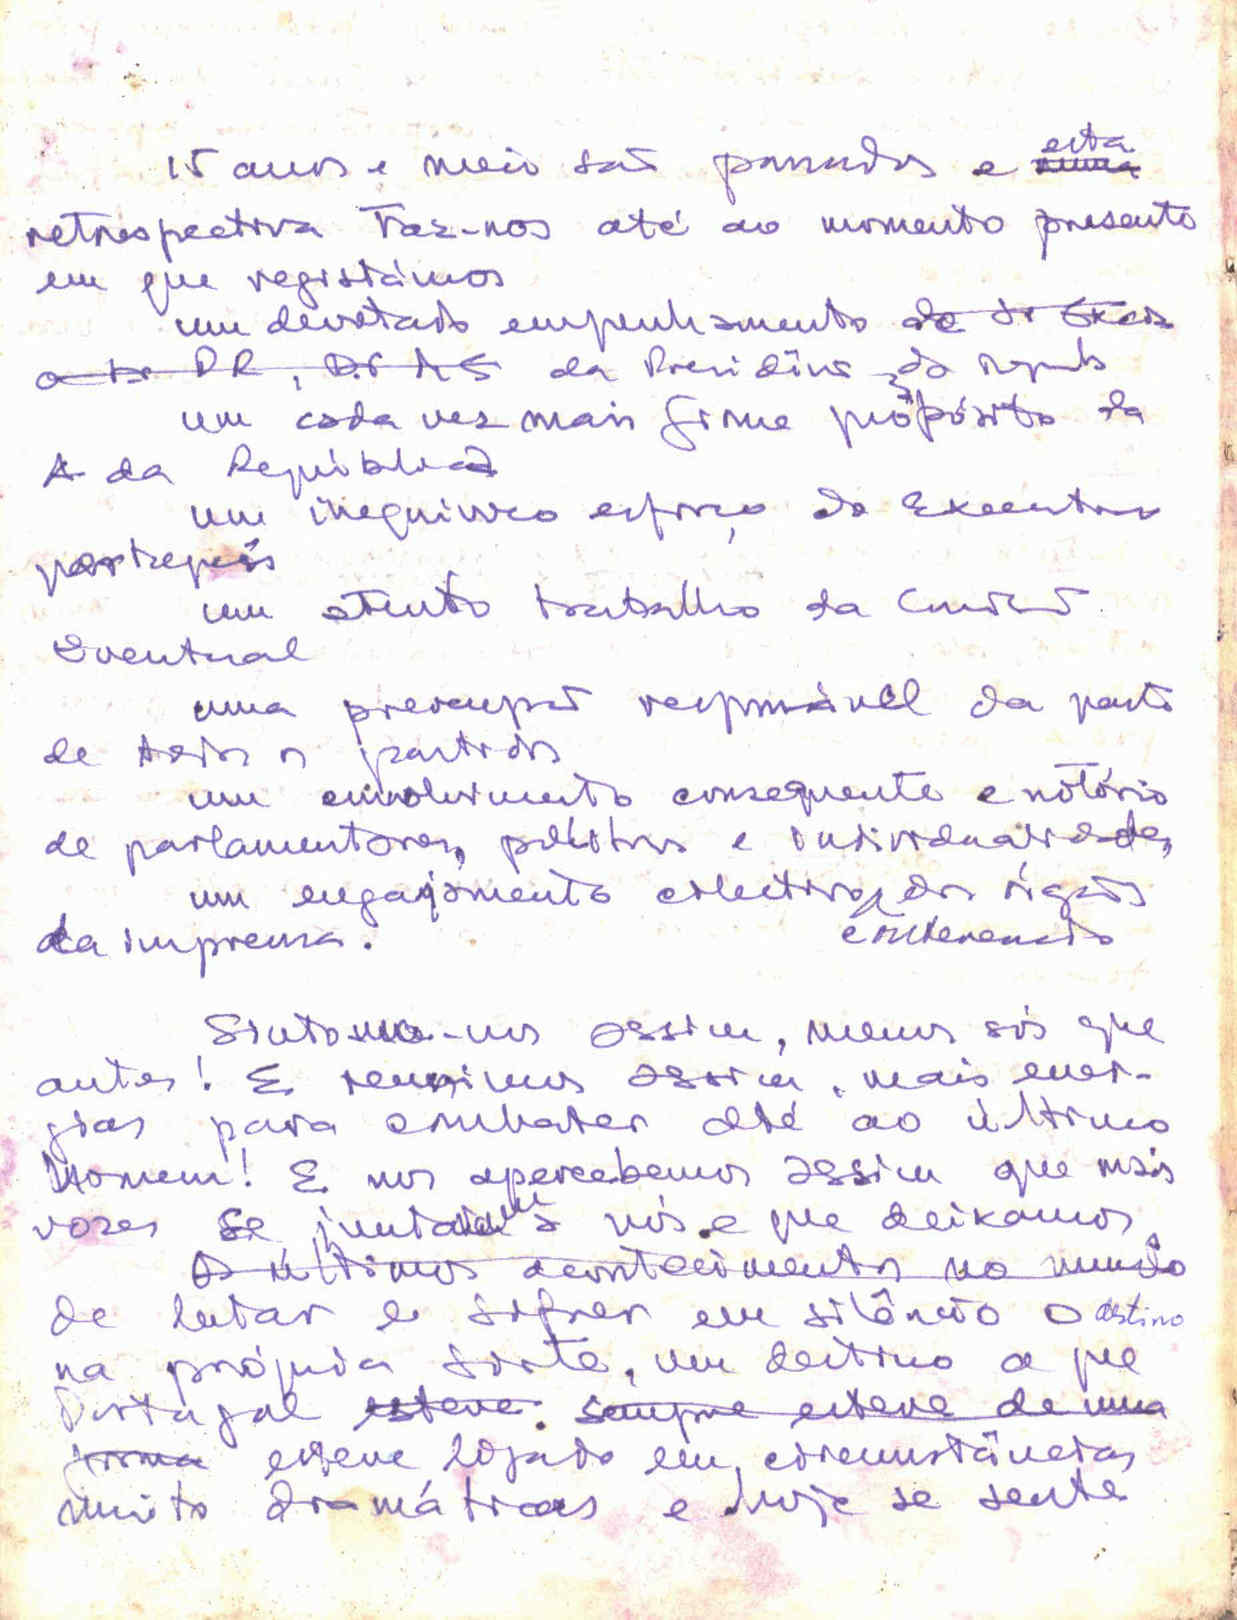 15 anos e meio são passados e esta
retrospectiva traz-nos até ao momento presente
em que registámos
um devotado empenhamento do Sr Exa
o Dr PR, Dr M S da Presidência da Repúb
um cada vez mais firme propósito da
A. da República
um inequívoco esforço do Executivo
português
um atento trabalho da Comissão
Eventual
uma preocupação responsável da parte
de todos os partidos
um envolvimento consequente e notório
de parlamentares, políticos e individualidades,
um engajamento colectivo dos órgãos
da imprensa.
Sintamo-nos assim, menos sós que
antes! E reunimos assim, mais ener-
gias para combater até ao último
Homem! E nos apercebemos assim que mais
vozes se juntam a nós e que deixamos
Os últimos acontecimentos no mundo
de lutar e sofrer em silêncio o destino
na própria sorte, um destino a que
Portugal esteve sempre esteve de uma
forma esteve ligado em circunstâncias
muito dramáticas e hoje se sente